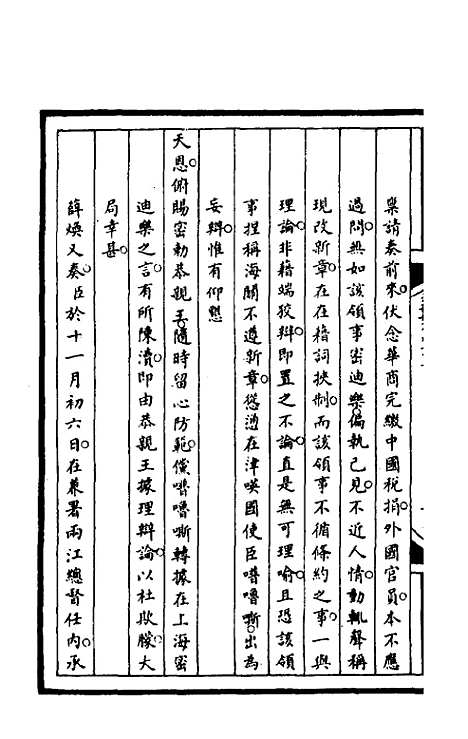 樂請奏前來伏念華商完繳中國稅捐外國官員本不應
過問無如該領事密迪樂偏執己見不近人情動輒聲稱
現改新章在在藉詞挾制而該領事不循條約之事一與
理論非藉端狡辯即置之不論直是無可理喻且恐該領
事捏稱海關不遵新章慫慂在津嘆國使臣嚕嚕嘶出為
妥辯惟有仰懇
天恩俯賜密勅恭親王隨時留心防範儻嚕嚕嘶轉據在上海密
迪樂之言有所陳瀆即由恭親王據理辯論以杜欺朦大
局幸甚
薛煥又奏臣於十一月初六日在兼署兩江總督任內承